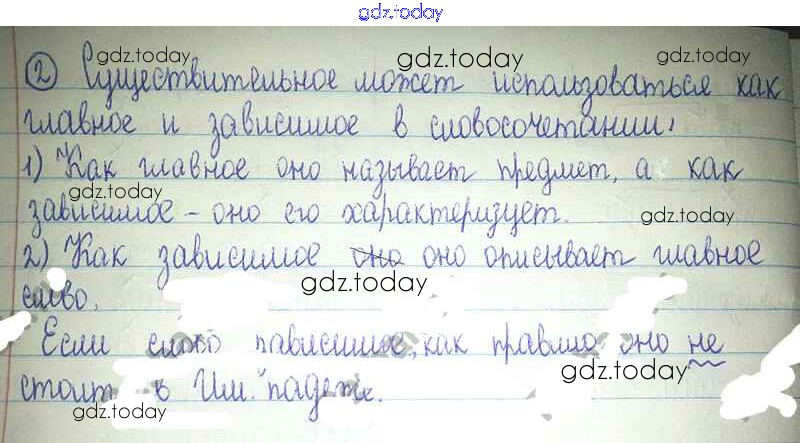 gdz.today
gdz.today
gdz.today
gdz.today
② Существительное может использоваться как
главное и зависимое в словосочетании:
1) Как главное оно называет предмет, а как
gdz.today
gdz.today
зависимое - оно его характеризует.
2) Как зависимое оно оно описывает главное
gdz.today
слово.
Если слово зависимое, как правило оно не
gdz.today
стоит в Им. падеже.
gdz.today
gdz.today